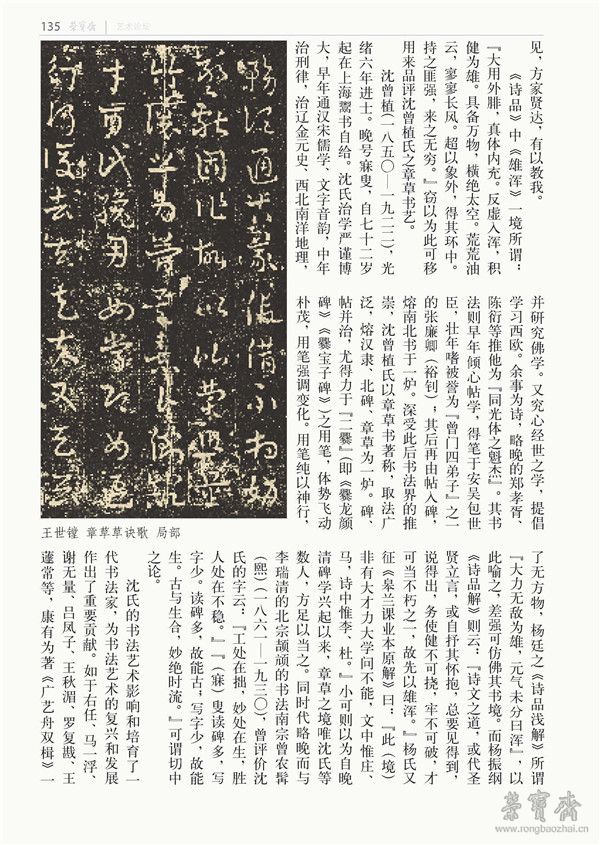 135 荣宝斋 | 艺术论坛
见，方家贤达，有以教我。
《诗品》中《雄浑》一境所谓：
『大用外腓，真体内充。反虚入浑，积
健为雄。具备万物，横绝太空。荒荒油
云，寥寥长风。超以象外，得其环中。
持之匪强，来之无穷。』窃以为此可移
用来品评沈曾植氏之章草书艺。
沈曾植（一八五〇—一九二二），光
绪六年进士。晚号寐叟，自七十二岁
起在上海鬻书自给。沈氏治学严谨博
大，早年通汉宋儒学、文字音韵，中年
治刑律，治辽金元史、西北南洋地理，
并研究佛学。又究心经世之学，提倡
学习西欧。余事为诗，略晚的郑孝胥、
陈衍等推他为『同光体之魁杰』。其书
法则早年倾心帖学，得笔于安吴包世
臣，壮年嗜被誉为『曾门四弟子』之一
的张廉卿（裕钊）；其后再由帖入碑，
熔南北书于一炉。深受此后书法界的推
崇，沈曾植氏以章草书著称，取法广
泛，熔汉隶、北碑、章草为一炉。碑、
帖并治，尤得力于『二爨』（即《爨龙颜
碑》《爨宝子碑》）之用笔，体势飞动
朴茂，用笔强调变化。用笔纯以神行，
王世镗 章草草诀歌 局部
了无方物，杨廷之《诗品浅解》所谓
『大力无敌为雄，元气未分曰浑』，以
此喻之，差强可仿佛其书境。而杨振纲
《诗品解》则云：『诗文之道，或代圣
贤立言，或自抒其怀抱，总要见得到，
说得出，务使健不可挠，牢不可破，才
可当不朽之一，故先以雄浑。』杨氏又
征《皋兰课业本原解》曰：『此（境）
非有大才力大学问不能，文中惟庄、
马，诗中惟李、杜。』小可则以为自晚
清碑学兴起以来，章草之境唯沈氏等
数人，方足以当之。同时代略晚而与
李瑞清的北宗颉颃的书法南宗曾农髯
（熙）（一八六一—一九三〇），曾评价沈
氏的字云：『工处在拙，妙处在生，胜
人处在不稳。』『（寐）叟读碑多，写
字少。读碑多，故能古；写字少，故能
生。古与生合，妙绝时流。』可谓切中
之论。
沈氏的书法艺术影响和培育了一
代书法家，为书法艺术的复兴和发展
作出了重要贡献。如于右任、马一浮、
谢无量、吕凤子、王秋湄、罗复戡、王
蘧常等，康有为著《广艺舟双楫》一
荣宝斋
www.rongbaozhai.cn